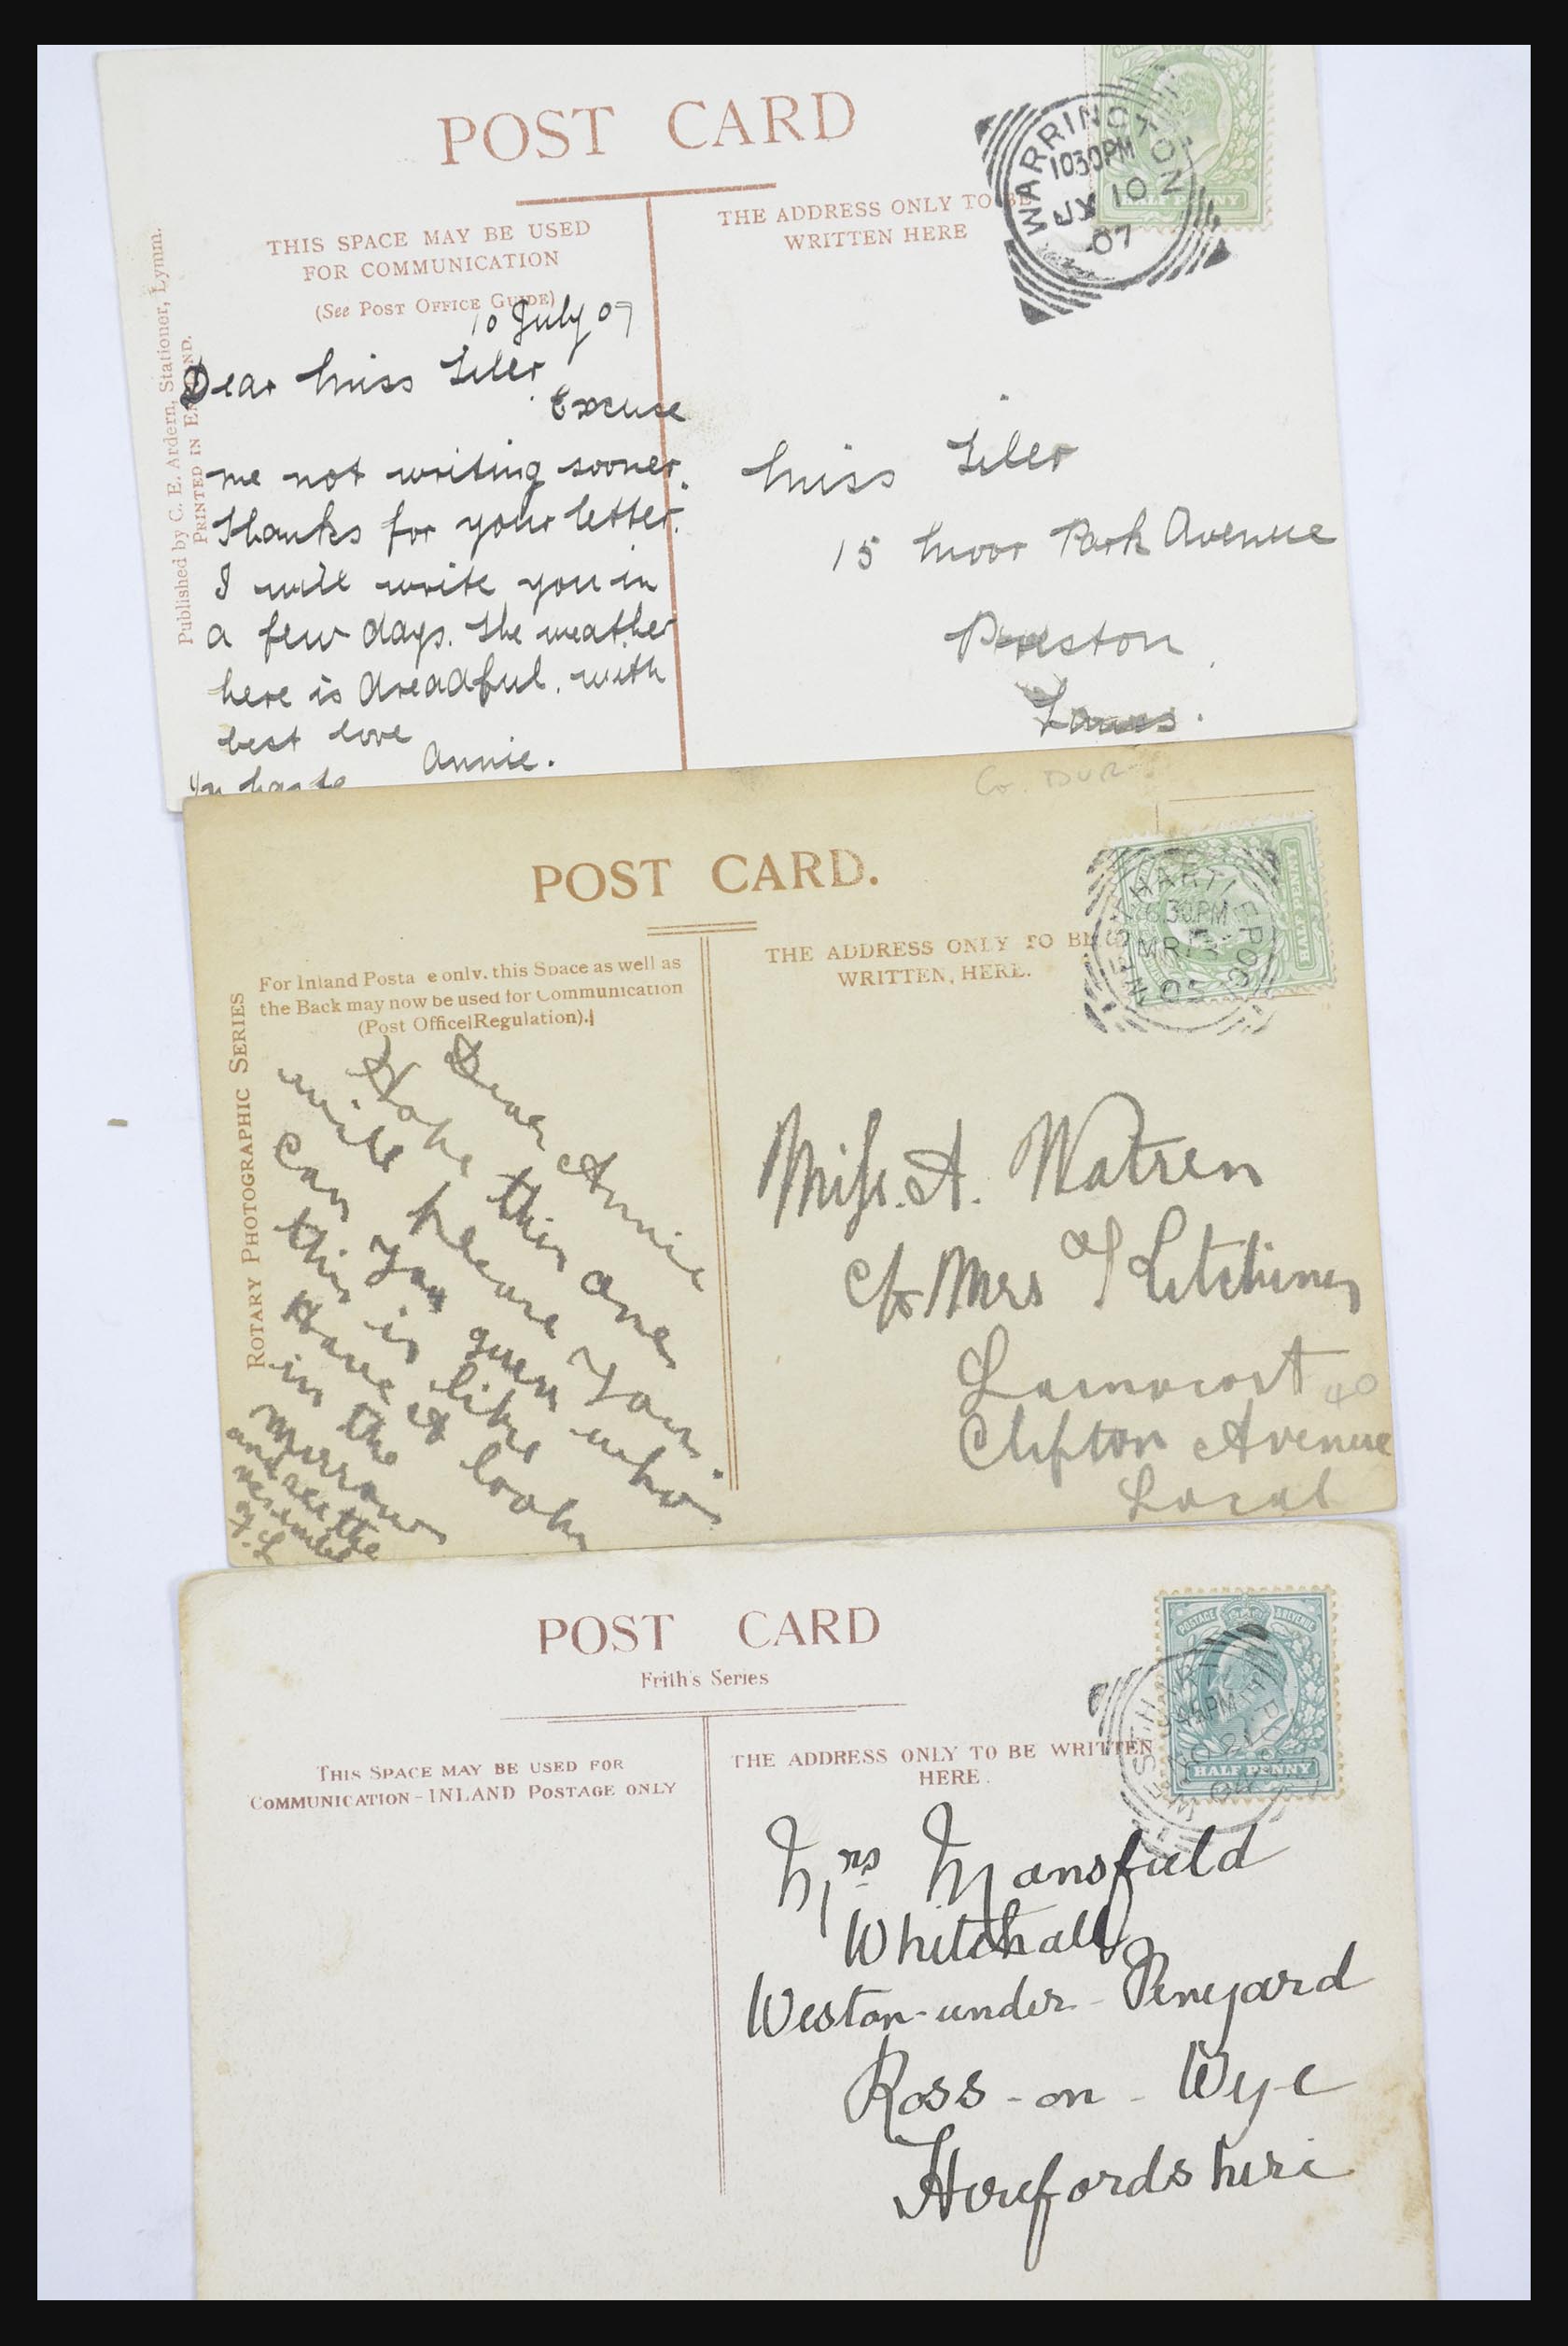 POST CARD
THIS SPACE MAY BE USED
FOR COMMUNICATION
(See POST OFFICE GUIDE)
THE ADDRESS ONLY TO BE
WRITTEN HERE
WARRINGTON
1030PM
JY 10
07
HALF PENNY
Published by C. E. Ardern, Stationer, Lymm.
PRINTED IN ENGLAND.
10 July 07
Dear Miss Tiler
Excuse
me not writing sooner.
Thanks for your letter.
I will write you in
a few days. The weather
here is dreadful. with
best love
Annie.
In haste
Miss Tiler
15 Moor Park Avenue
Preston
Lancs.
Co. DUR
POST CARD.
For Inland Posta e only, this Space as well as
the Back may now be used for Communication
(Post Office Regulation).
THE ADDRESS ONLY TO BE
WRITTEN, HERE.
WEST HARTLEPOOL
6.30PM
MR 13
05
HALF PENNY
ROTARY PHOTOGRAPHIC SERIES
Dear Annie
Hope this one
will please You.
Can You guen who
this is like
Have a look
in the
Mirrow
and see the
A. L
Miss. A. Watren
c/o Mrs
40
Clifton Avenue
Local
POST CARD
Frith's Series
THIS SPACE MAY BE USED FOR
COMMUNICATION - INLAND POSTAGE ONLY
THE ADDRESS ONLY TO BE WRITTEN
HERE.
POSTAGE REVENUE
HALF PENNY
45PM
04
Mrs Mansfield
Whitehall
Weston-under-Penyard
Ross-on-Wye
Herefordshire